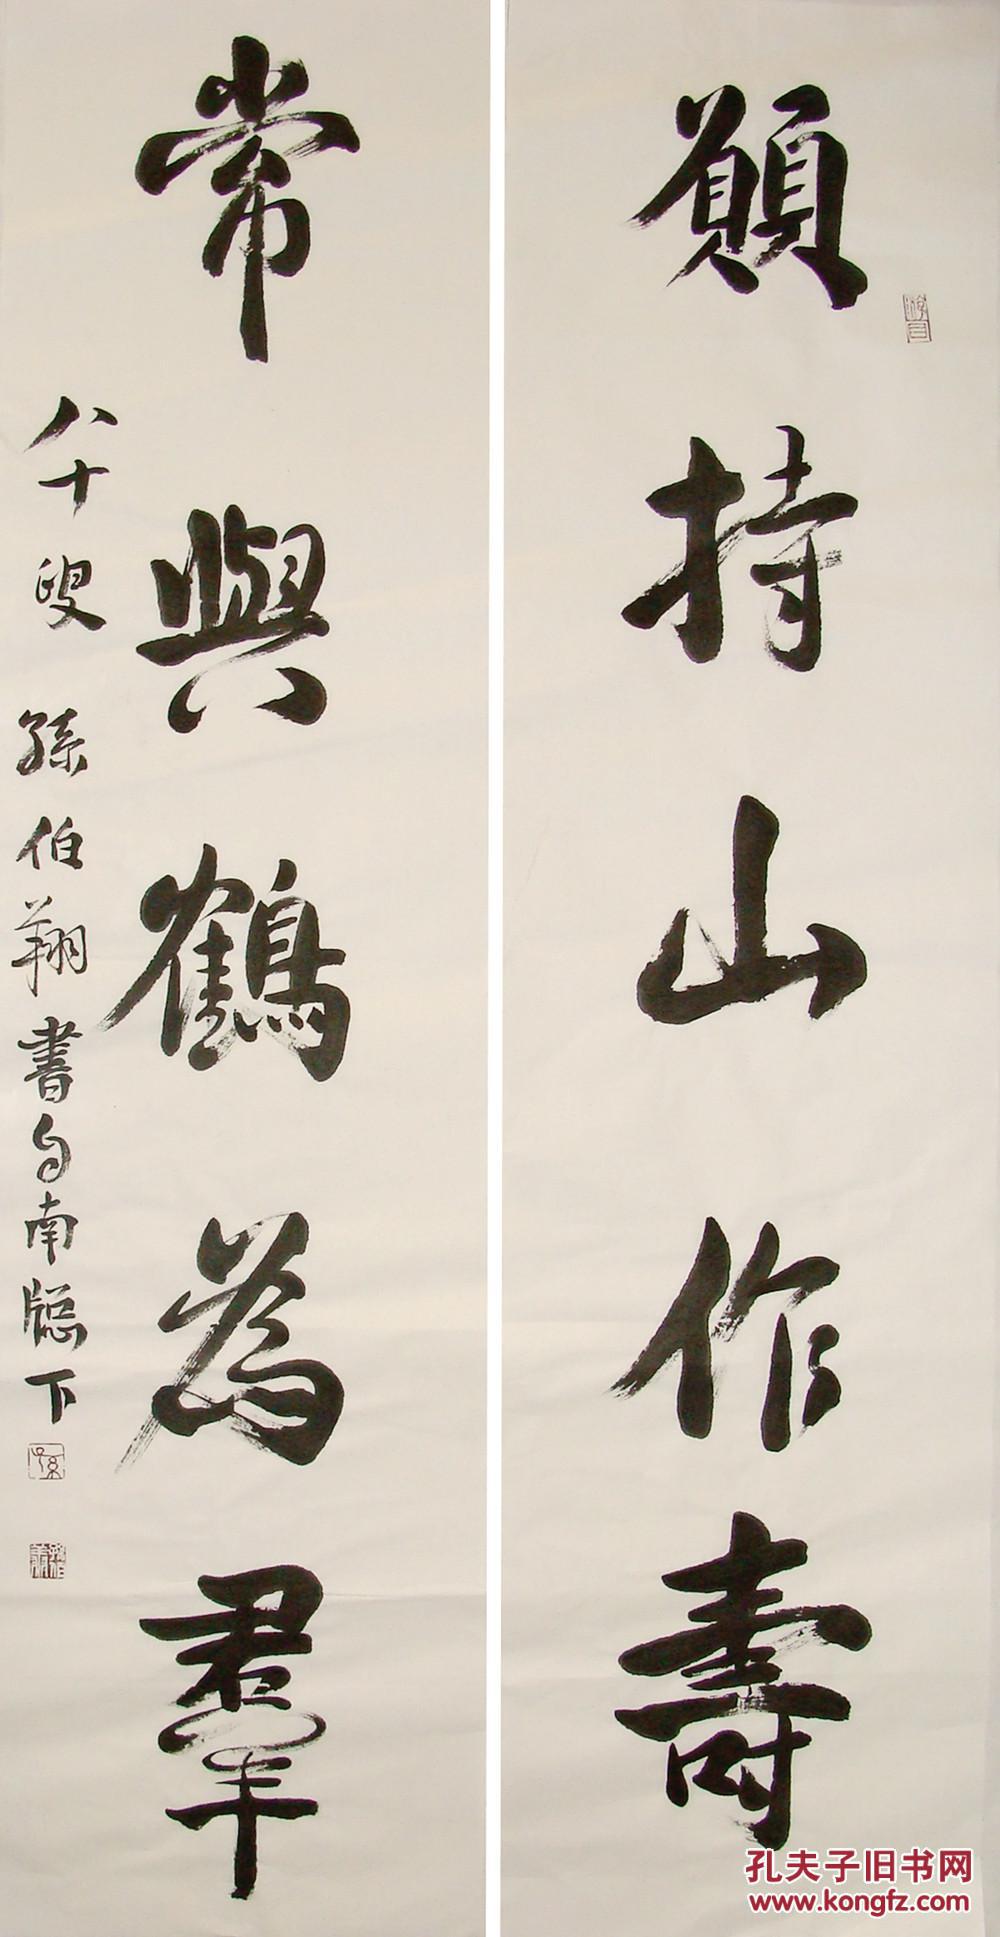 願持山作壽
常與鶴為羣
八十叟 孫伯翔書自南牕下
孔夫子旧书网
www.kongfz.com